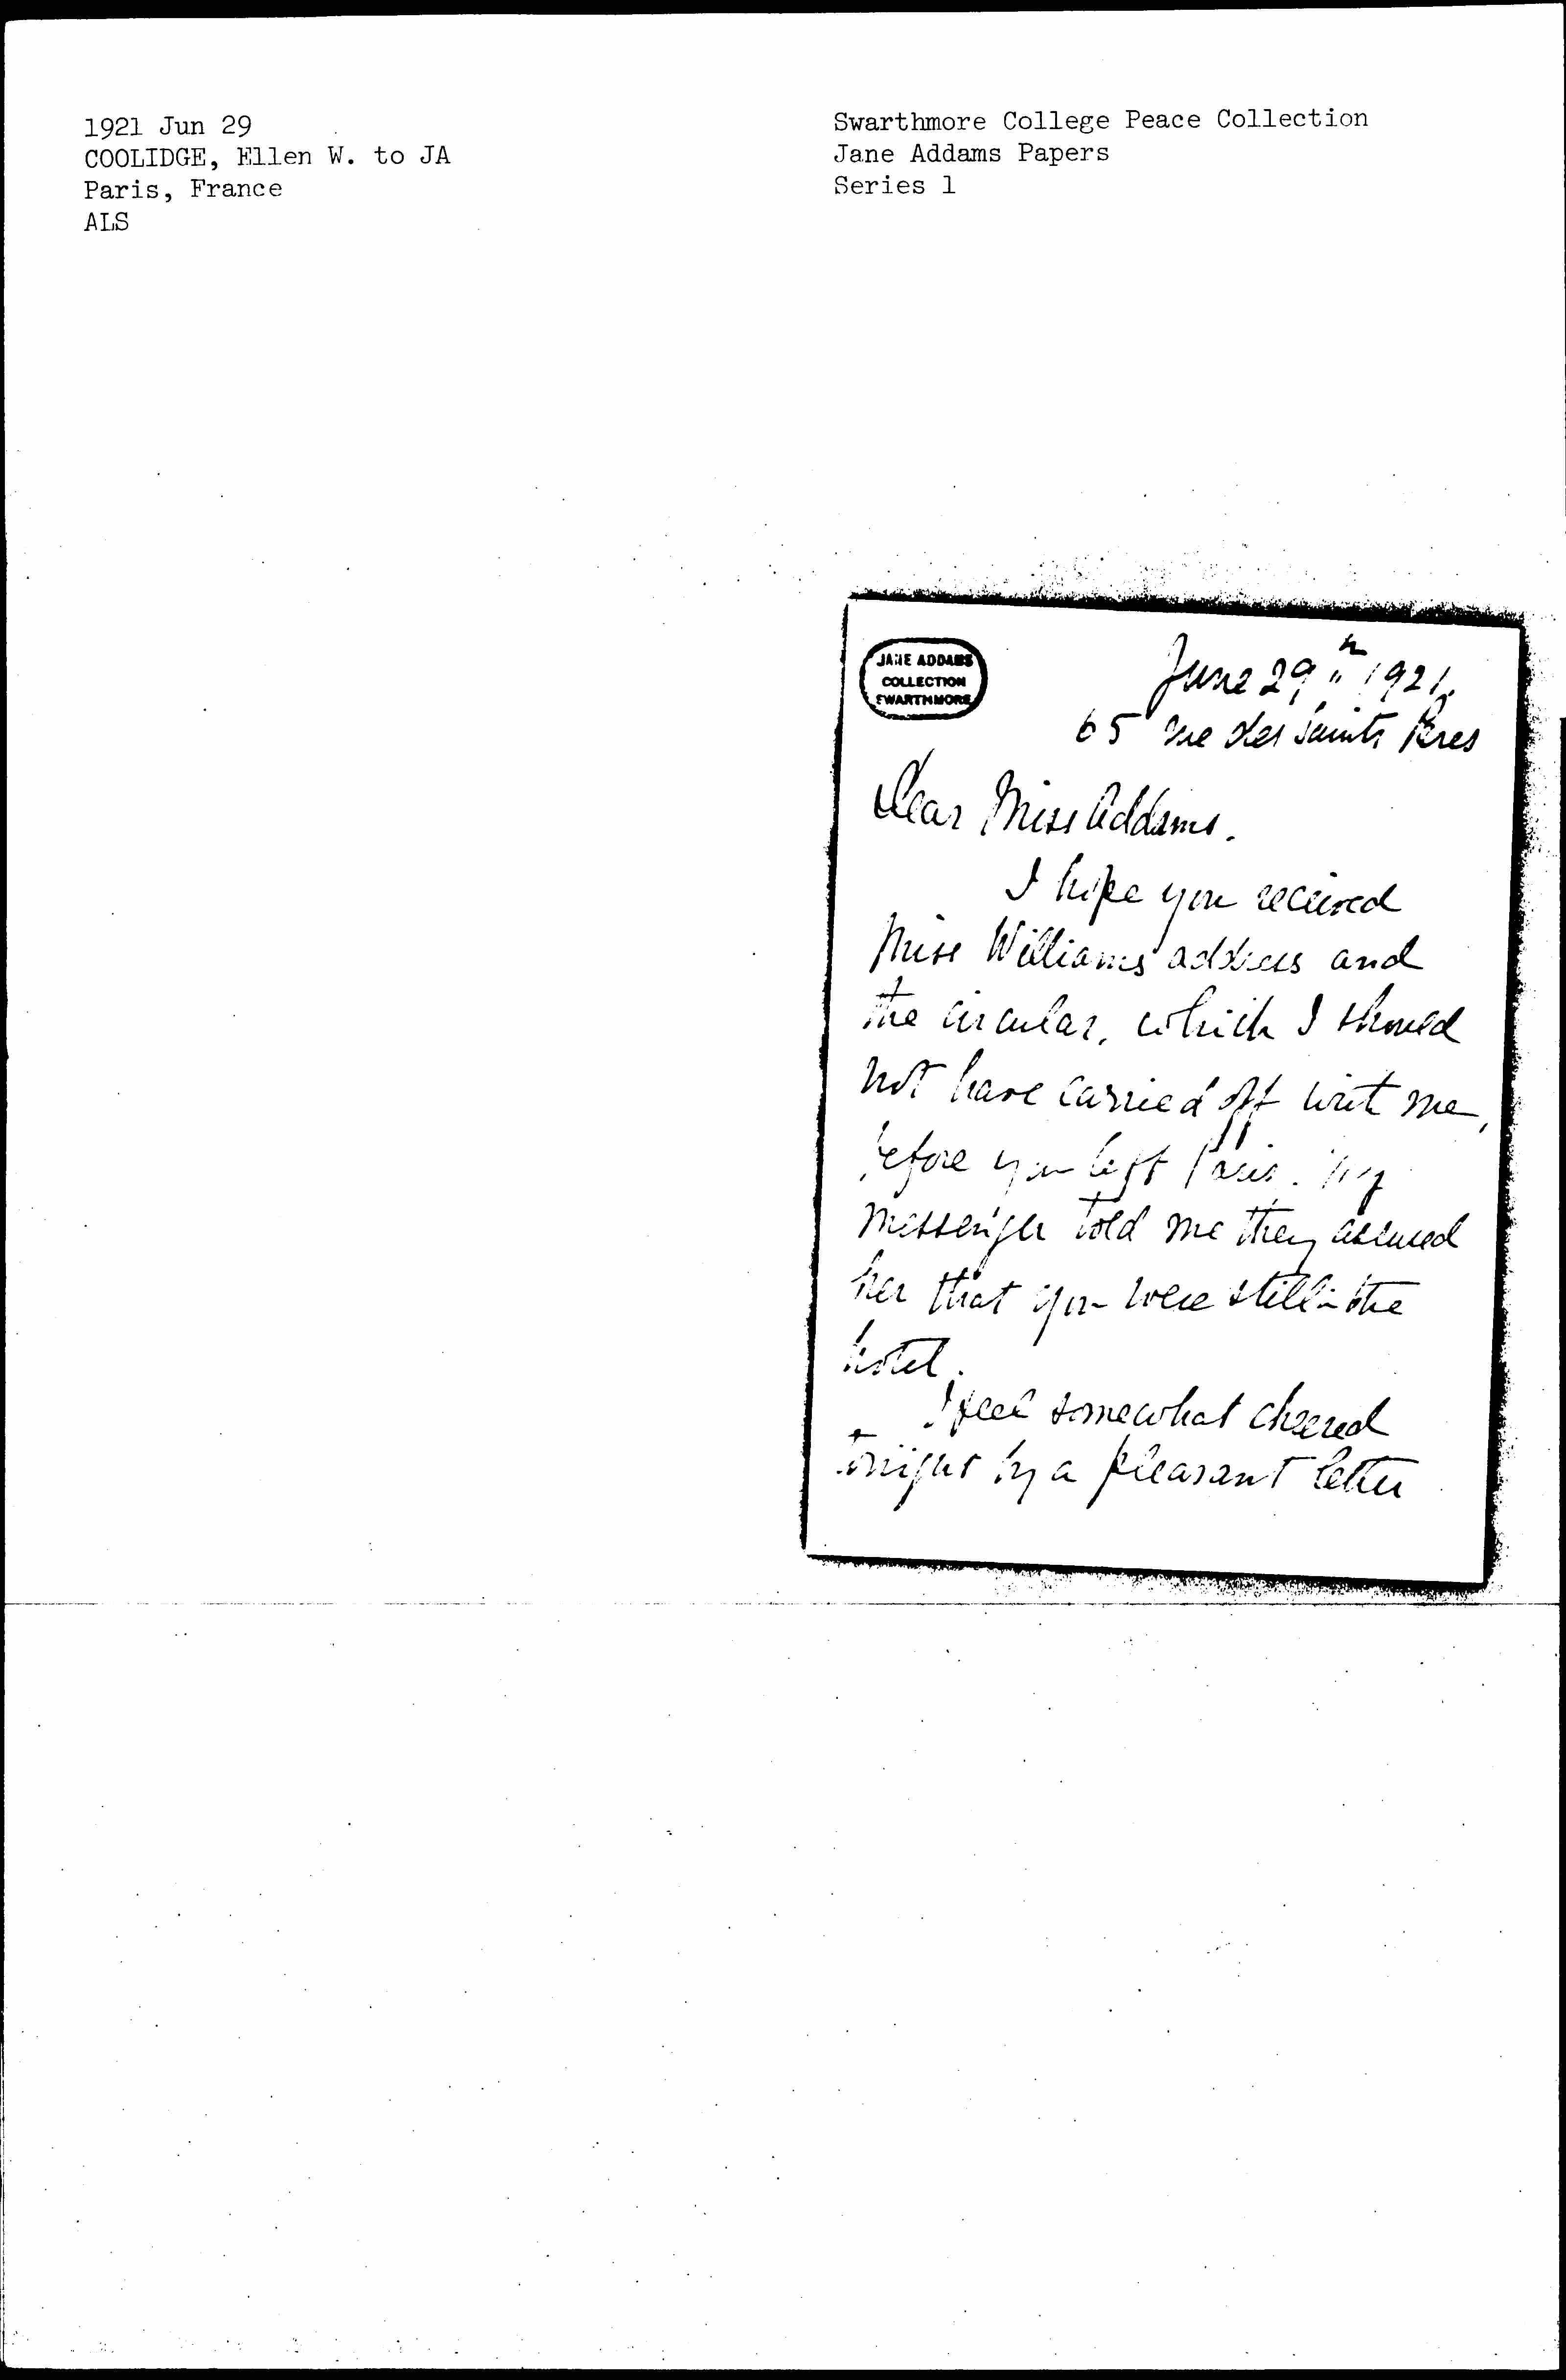 1921 Jun 29
COOLIDGE, Ellen W. to JA
Paris, France
ALS
Swarthmore College Peace Collection
Jane Addams Papers
Series 1
JANE ADDAMS
COLLECTION
SWARTHMORE
June 29th 1921.
65 rue des Saints Pères
Dear Miss Addams.
I hope you received
Miss Williams' address and
the circular, which I should
not have carried off with me,
before you left Paris. My
messenger told me they assured
her that you were still in the
hotel.
I feel somewhat cheered
tonight by a pleasant letter